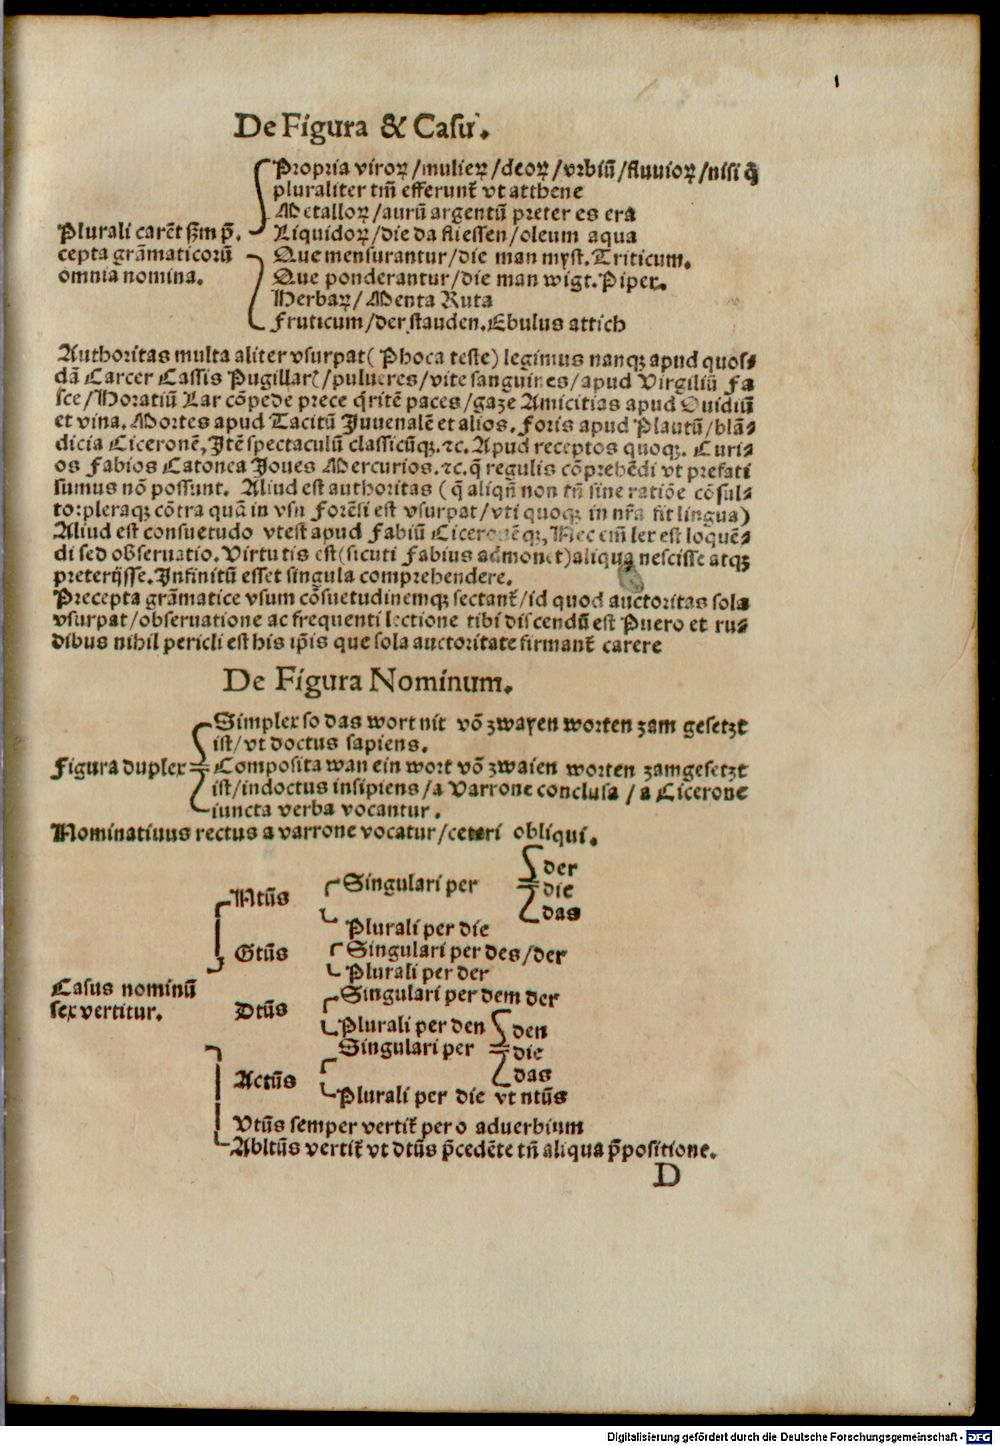 De Figura & Casu.
Propria viroꝝ/mulieꝝ/deoꝝ/vrbiū/fluuioꝝ/nisi q̄
pluraliter tm̄ efferunt᷑ vt atthene
Metalloꝝ/aurū argentū preter es era
Plurali carēt ẜm p̄.
Liquidoꝝ/die da fliessen/oleum aqua
cepta grāmaticorū
Que mensurantur/die man myst. Triticum.
omnia nomina.
Que ponderantur/die man wigt. Piper.
Herbaꝝ/Menta Ruta
Fruticum/der stauden. Ebulus attich
Authoritas multa aliter vsurpat (Phoca teste) legimus nanqꝫ apud quos⸗
dā Carcer Cassis Pugillar᷑/pulueres/vite sanguines/apud Virgiliū Fa
sce/Horatiū Lar cōpede prece q̄ritē paces/gaze Amicitias apud Ouidiū
et vina. Mortes apud Tacitū Juuenalē et alios. Foris apud Plautū/blā⸗
dicia Ciceronē, Itē spectaculū classicūqꝫ.⁊c. Apud receptos quoqꝫ. Curi⸗
os Fabios Catonea Joues Mercurios.⁊c. q̄ regulis cōprehēdi vt prefati
sumus nō possunt. Aliud est authoritas (q̄ aliqn̄ non tn̄ sine ratiōe cōsul⸗
to: pleraqꝫ cōtra quā in vsu forēsi est vsurpat/vti quoqꝫ in nr̄a fit lingua)
Aliud est consuetudo vt est apud Fabiū Ciceronēqꝫ, Nec em̄ lex est loquē⸗
di sed obseruatio. Virtutis est (sicuti Fabius admonet) aliqua nescisse atqꝫ
preterijsse. Infinitū esset singula comprehendere.
Precepta grāmatice vsum cōsuetudinemqꝫ sectant᷑/id quod auctoritas sola
vsurpat/obseruatione ac frequenti lectione tibi discendū est Puero et ru⸗
dibus nihil pericli est his ip̄is que sola auctoritate firmant᷑ carere
De Figura Nominum.
Simplex so das wort nit vō zwayen worten zam gesetzt
ist/vt doctus sapiens.
Figura duplex
Composita wan ein wort vō zwaien worten zamgesetzt
ist/indoctus insipiens/a Varrone conclusa/a Cicerone
iuncta verba vocantur.
Nominatiuus rectus a varrone vocatur/ceteri obliqui.
der
Ntūs Singulari per die
das
Plurali per die
Gtūs Singulari per des/der
Plurali per der
Casus nominū
sex vertitur.
Dtūs Singulari per dem der
Plurali per den
den
Singulari per die
das
Actūs
Plurali per die vt ntūs
Vtūs semper vertit᷑ per o aduerbium
Abltūs vertit᷑ vt dtūs p̄cedēte tn̄ aliqua p̄positione.
D
Digitalisierung gefördert durch die Deutsche Forschungsgemeinschaft - DFG